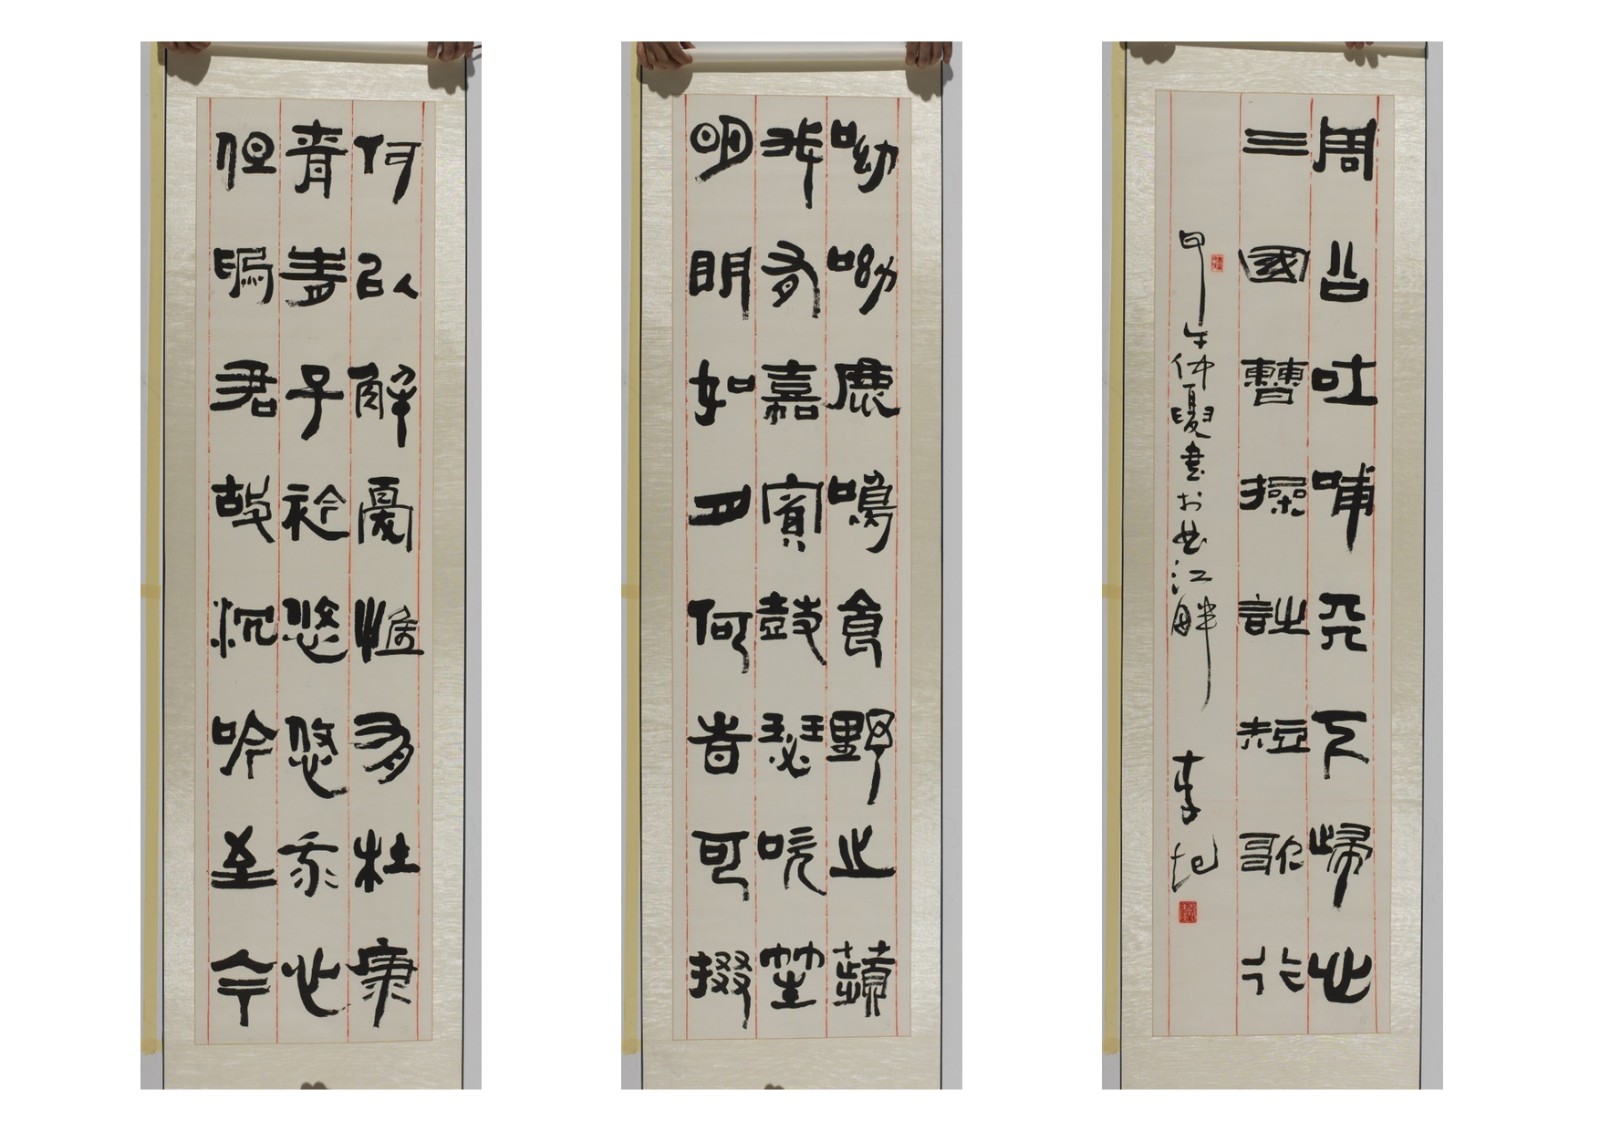 何以解憂惟有杜康
青青子衿悠悠我心
但為君故沉吟至今
呦呦鹿鳴食野之蘋
我有嘉賓鼓瑟吹笙
明明如月何時可掇
周公吐哺天下歸心
三國曹操詩短歌行
甲午仲夏書於曲江畔
李